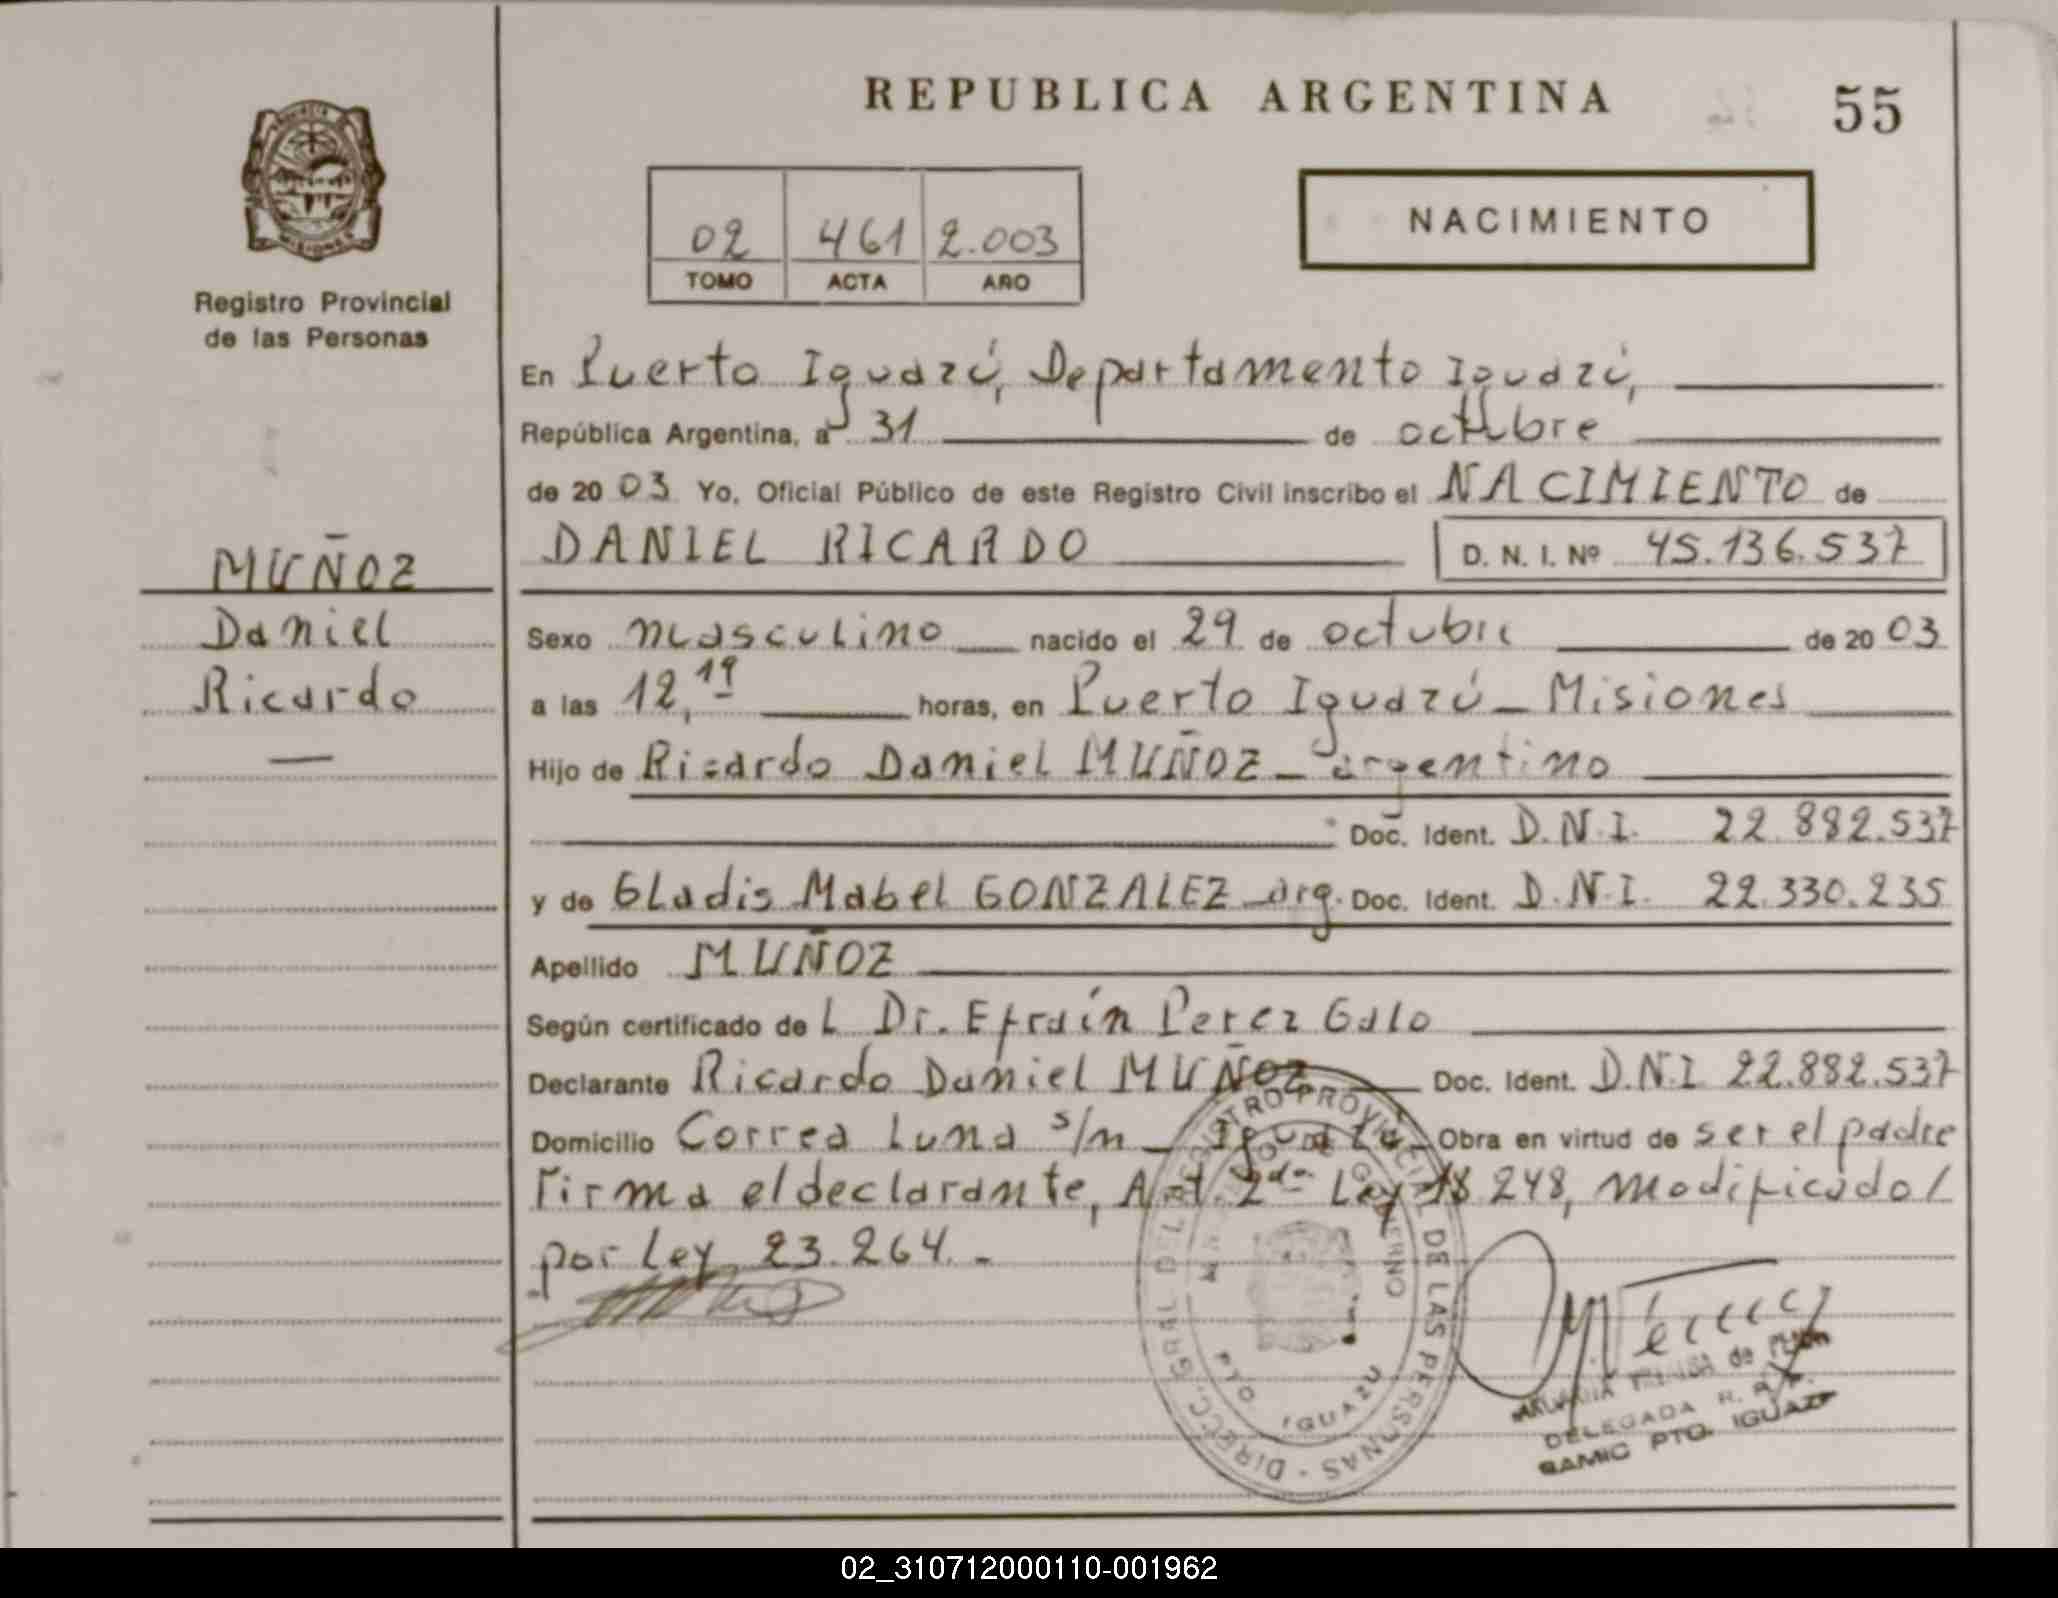 REPUBLICA ARGENTINA
55
PROVINCIA
MISIONES
Registro Provincial
de las Personas
02 461 2.003
TOMO ACTA AÑO
NACIMIENTO
En Puerto Iguazú, Departamento Iguazú,
República Argentina, a 31 de octubre
de 2003 Yo, Oficial Público de este Registro Civil inscribo el NACIMIENTO de
DANIEL RICARDO D. N. I. Nº 45.136.537
MUÑOZ
Daniel
Ricardo
—
Sexo masculino nacido el 29 de octubre de 2003
a las 12,19 horas, en Puerto Iguazú - Misiones
Hijo de Ricardo Daniel MUÑOZ - argentino
Doc. Ident. D.N.I. 22.882.537
y de Gladis Mabel GONZALEZ - arg. Doc. Ident. D.N.I. 22.330.235
Apellido MUÑOZ
Según certificado de L Dr. Efraín Perez Galo
Declarante Ricardo Daniel MUÑOZ Doc. Ident. D.N.I 22.882.537
Domicilio Correa Luna s/n - Iguazú Obra en virtud de ser el padre
Firma el declarante, Art. 2do Ley 18 248, modificado/
por Ley 23.264.-
DIRECC. GRAL DEL REGISTRO PROVINCIAL DE LAS PERSONAS
MINISTERIO DE GOBIERNO
PTO IGUAZU
DELEGADA R. P. P.
SAMIC PTO. IGUAZU
02_310712000110-001962